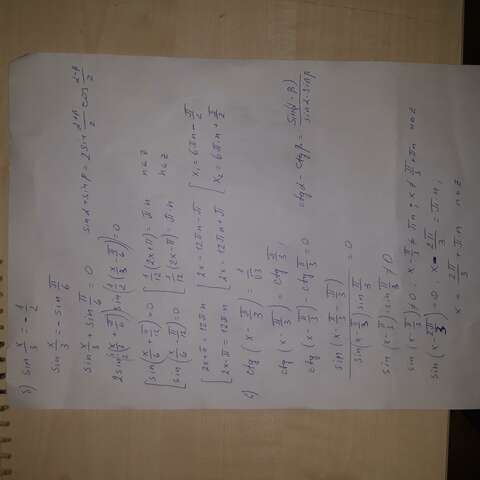 б) sin x/3 = -1/2
sin x/3 = -sin π/6
sin x/3 + sin π/6 = 0    sinα+sinβ = 2sin (α+β)/2 cos (α-β)/2
[sin(x/6 + π/12) = 0 [1/12 (2x+π) = π·n    n∈Z
[sin(x/6 - π/12) = 0 [1/12 (2x-π) = π·n    n∈Z
[2x+π = 12πn [2x = 12πn-π [x₁ = 6πn - π/2
[2x-π = 12πn [2x = 12πn+π [x₂ = 6πn + π/2
ctg (x - π/3) = 1/√3
ctg (x - π/3) = ctg π/3;
ctg (x - π/3) - ctg π/3 = 0    ctgα - ctgβ = sin(α-β)/sinα·sinβ
sin(x - π/3 - π/3) / sin(x - π/3) sin π/3 = 0
sin(x - π/3)·sin π/3 ≠ 0
sin(x - π/3) ≠ 0; x - π/3 ≠ πn; x ≠ π/3 + πn n∈Z
sin(x - 2π/3) = 0; x - 2π/3 = πn;
x = 2π/3 + πn n∈Z